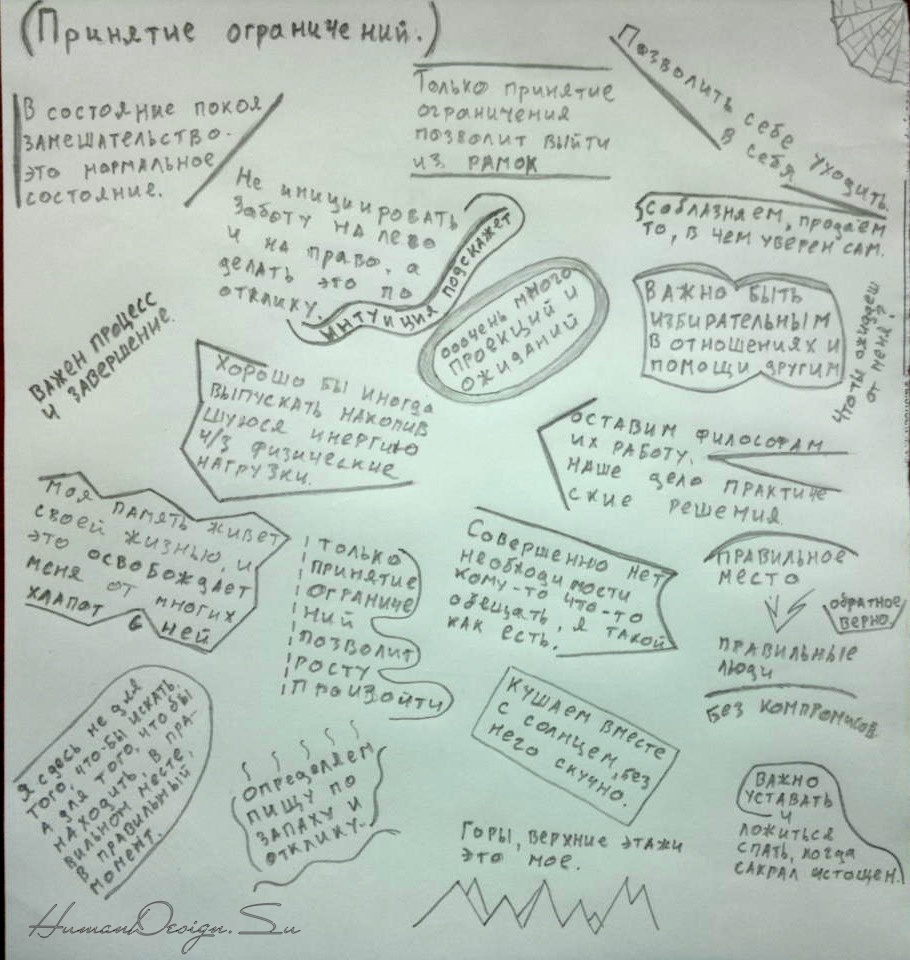 (Принятие ограничений.)
В состояние покоя
замешательство -
это нормальное
состояние.
Только принятие
ограничения
позволит выйти
из рамок
Позволить себе уходить
в себя
Не инициировать
заботу на лево
и на право, а
делать это по
отклику.
интуиция подскажет
Соблазняем, продаём
то, в чем уверен сам.
ооочень много
проекций и
ожиданий
Важно быть
избирательным
в отношениях и
помощи другим
Что ты ожидаеш
от меня?
Важен процесс
и завершение.
Хорошо бы иногда
выпускать накопив
шуюся инергию
ч/з физические
нагрузки.
Оставим философам
их работу.
Наше дело практиче
ские решения
Моя память живет
своей жизнью, и
это освобождает
меня от многих
хлапот с ней
Только
принятие
ограниче
ний
позволит
росту
произойти
Совершенно нет
необходимости
кому-то что-то
обещать, я такой
как есть.
Правильное
место
обратное
верно.
правильные
люди
Без компромисов
Я сдесь не для
того, что-бы искать,
а для того, что бы
находить в пра-
вильном месте,
в правильный
момент.
Определяем
пищу по
запаху и
отклику.
Кушаем вместе
с солнцем, без
него скучно.
Горы, верхние этажи
это мое.
Важно
уставать
и
ложиться
спать, когда
сакрал истощен.
HumanDesign.Su